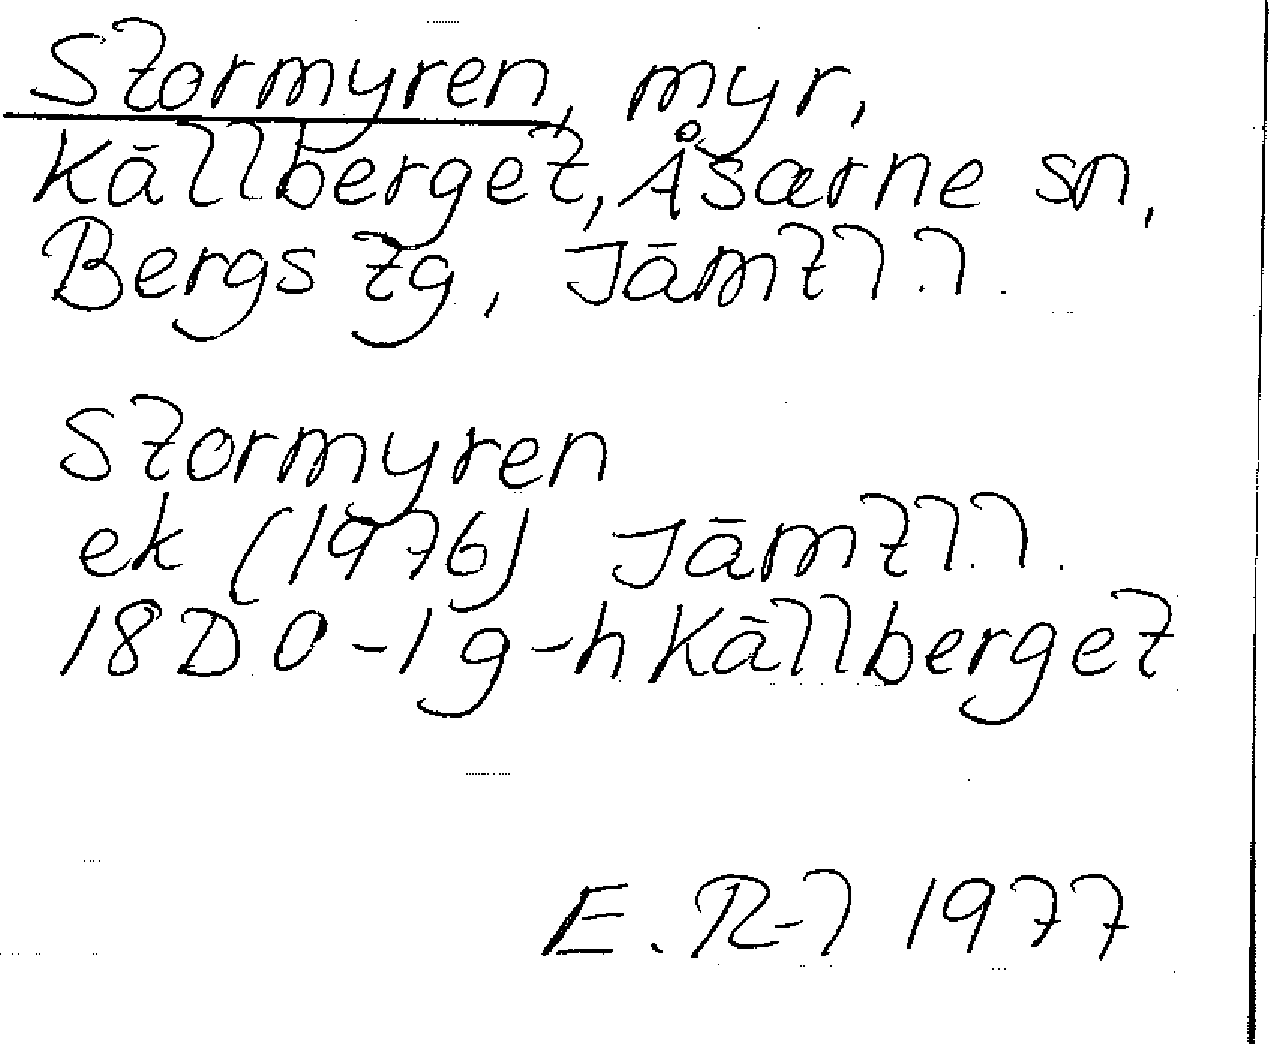 Stormyren, myr,
Källberget, Åsarne sn,
Bergs tg, Jämtl.l.
Stormyren
ek (1976) Jämtl.l.
18D 0-1 g-h Källberget
E. R-l 1977